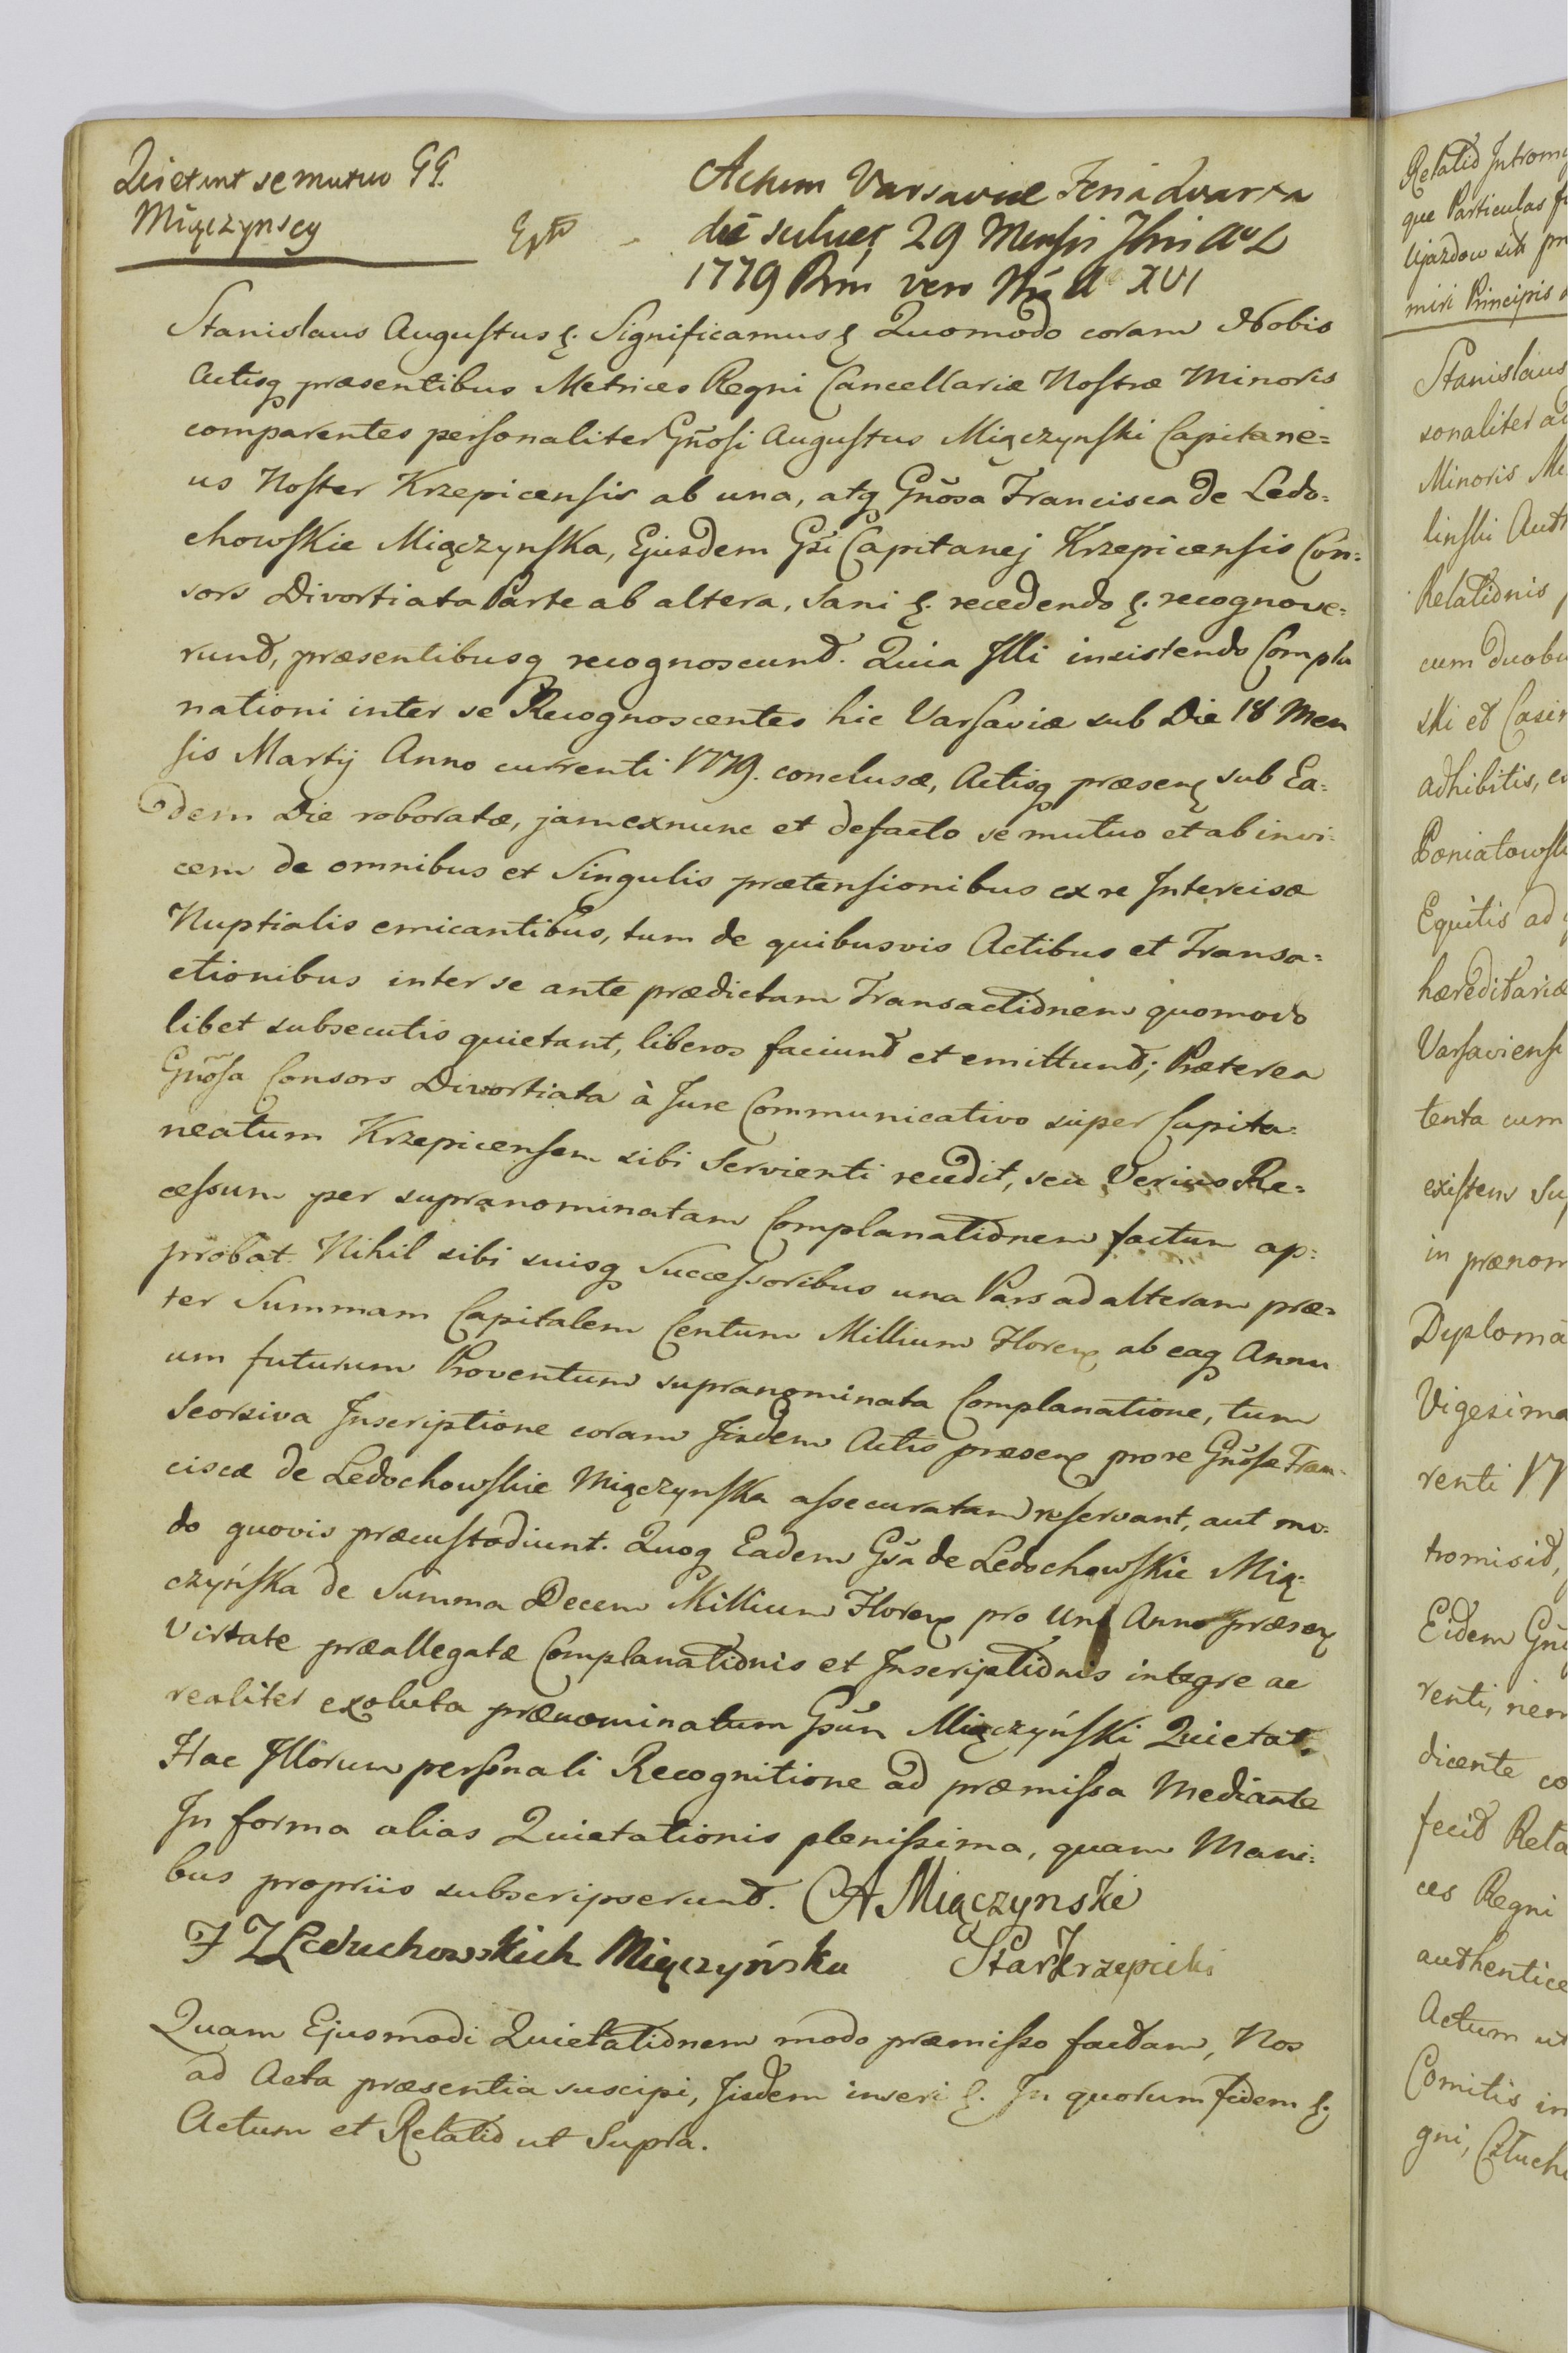 Quietant se mutuo GG.
Miączynscy
Actum Varsaviæ Feria Quarta
die 29 Mensis
1779 vero XVI
Stanislaus Augustus &. Significamus & Quomodo coram Nobis
Actisq præsentibus Metrices Regni Cancellariæ Nostræ Minoris
comparentes personaliter Gnosi Augustus Miączynski Capitane=
us Noster Krzepicensis ab una, atq Gnosa Francisca de Ledo=
chowskie Miączynska, Ejusdem Gsi Capitanej Krzepicensis Con=
sors Divortiata Parte ab altera, Sani &. recedendo &. recognove=
runt, præsentibusq recognoscunt. Quia Illi insistendo Compla
nationi inter se Recognoscentes hic Varsaviæ sub Die 18 Men
sis Martij Anno currenti 1779. conclusæ, Actisq præsen sub Ea=
dem Die roboratæ, jam exnunc et defacto se mutuo et ab invi=
cem de omnibus et Singulis prætensionibus ex re Intercisæ
Nuptialis emicantibus, tum de quibusvis Actibus et Transa=
ctionibus inter se ante prædictam Transactionem quomodo
libet subsecutis quietant, liberos faciunt et emittunt; Præterea
Gnosa Consors Divortiata à Jure Communicativo super Capita=
neatum Krzepicensem sibi Servienti recedit, seu Verius Re=
cessum per supranominatam Complanationem factum ap=
probat. Nihil sibi suisq Successoribus una Pars ad alteram præ=
ter Summam Capitalem Centum Millium Floren ab eaq Annu
um futurum Proventum supranominata Complanatione, tum
Seorsiva Inscriptione coram Iisdem Actis præsen pro re Gnosæ Fran=
ciscæ de Ledochowskie Miączynska assecuratam reservant, aut mo=
do quovis præcustodiunt. Quoq Eadem Gsa de Ledochowskie Mią=
czyńska de Summa Decem Millium Floren pro Uno Anno præsen
Virtute præallegatæ Complanationis et Inscriptionis integre ac
realiter exoluta prænominatum Gsum Miączyński Quietat.
Hac Illorum personali Recognitione ad præmissa Mediante
In forma alias Quietationis plenissima, quam Mani=
bus propriis subscripserunt. A Miączynski
F Z Leduchowskich Miączyńska Star Krzepicki
Quam Ejusmodi Quietationem modo præmisso factam, Nos
ad Acta præsentia suscipi, Iisdem inseri &. In quorum fidem &.
Actum et Relatio ut Supra.
Relatio Introm
que Particulas
Ujazdow sit
miri Principis
Stanislaus
sonaliter
Minoris
linski Auth
Relationis
cum duobu
ski et Casi
adhibitis,
Poniatowsk
Equitis ad
hæreditariæ
Varsaviensi
tenta cum
existens
in prænom
Dyploma
Vigesima
renti 17
tromisit,
Eidem
renti,
dicente
fecit Rela
ces Regni
authentice
Actum ut
Comitis
gni, Człuch